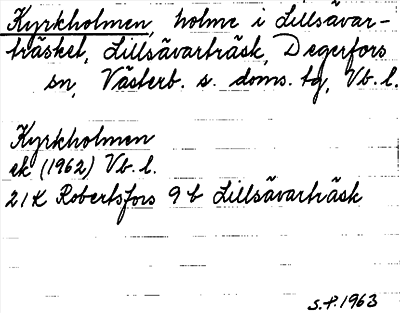 Kyrkholmen, holme i Lillsävar-
träsket, Lillsävarträsk, Degerfors
sn, Västerb. s. doms. tg, Vb. l.
Kyrkholmen
ek (1962) Vb. l.
21K Robertsfors 9 b Lillsävarträsk
S.P. 1963